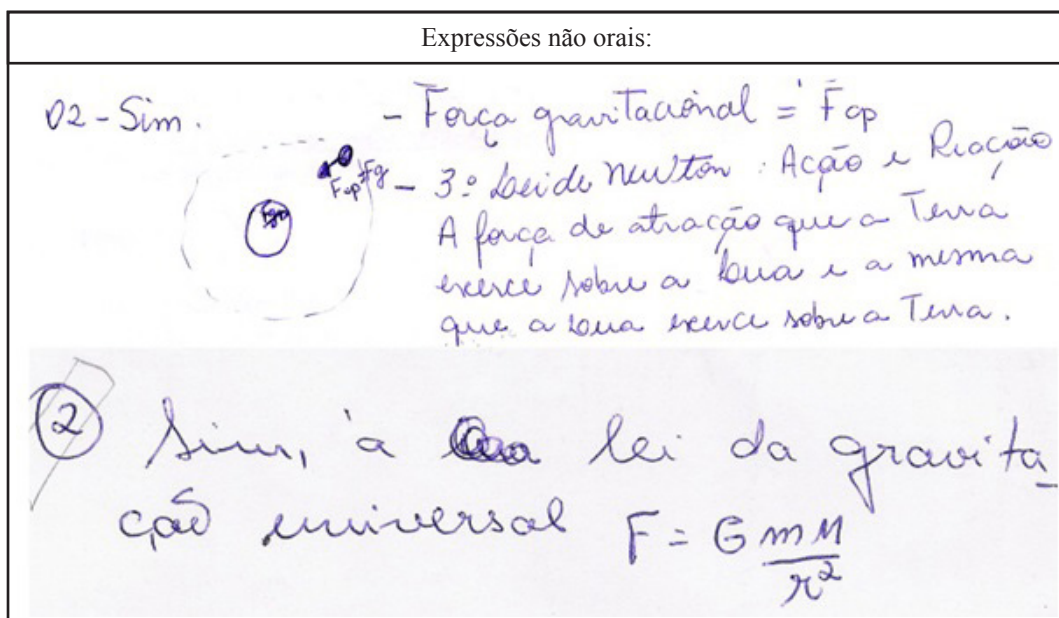 Expressões não orais:
02 - Sim.
- Força gravitacional = Fcp
Fcp Fg
- 3ª Lei de Newton : Ação e Reação
A força de atração que a Terra
exerce sobre a Lua e a mesma
que a Lua exerce sobre a Terra.
2 Sim, a lei da gravita_
ção universal F = G mM
r²